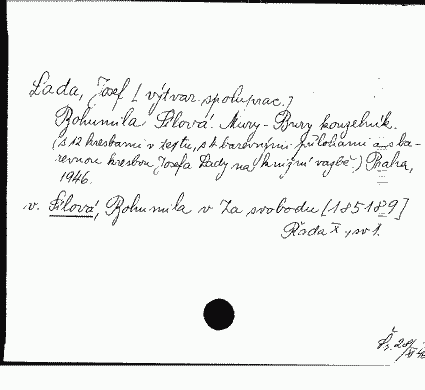 Lada, Josef [výtvar. spoluprac.]
Bohumila Sílová: Mury-Bury kouzelník.
(S 12 kresbami v textu, s 4 barevnými přílohami a s ba-
revnou kresbou Josefa Lady na knižní vazbě.) Praha,
1946.
v. Sílová, Bohumila v Za svobodu [185189]
Řada X, sv. 1.